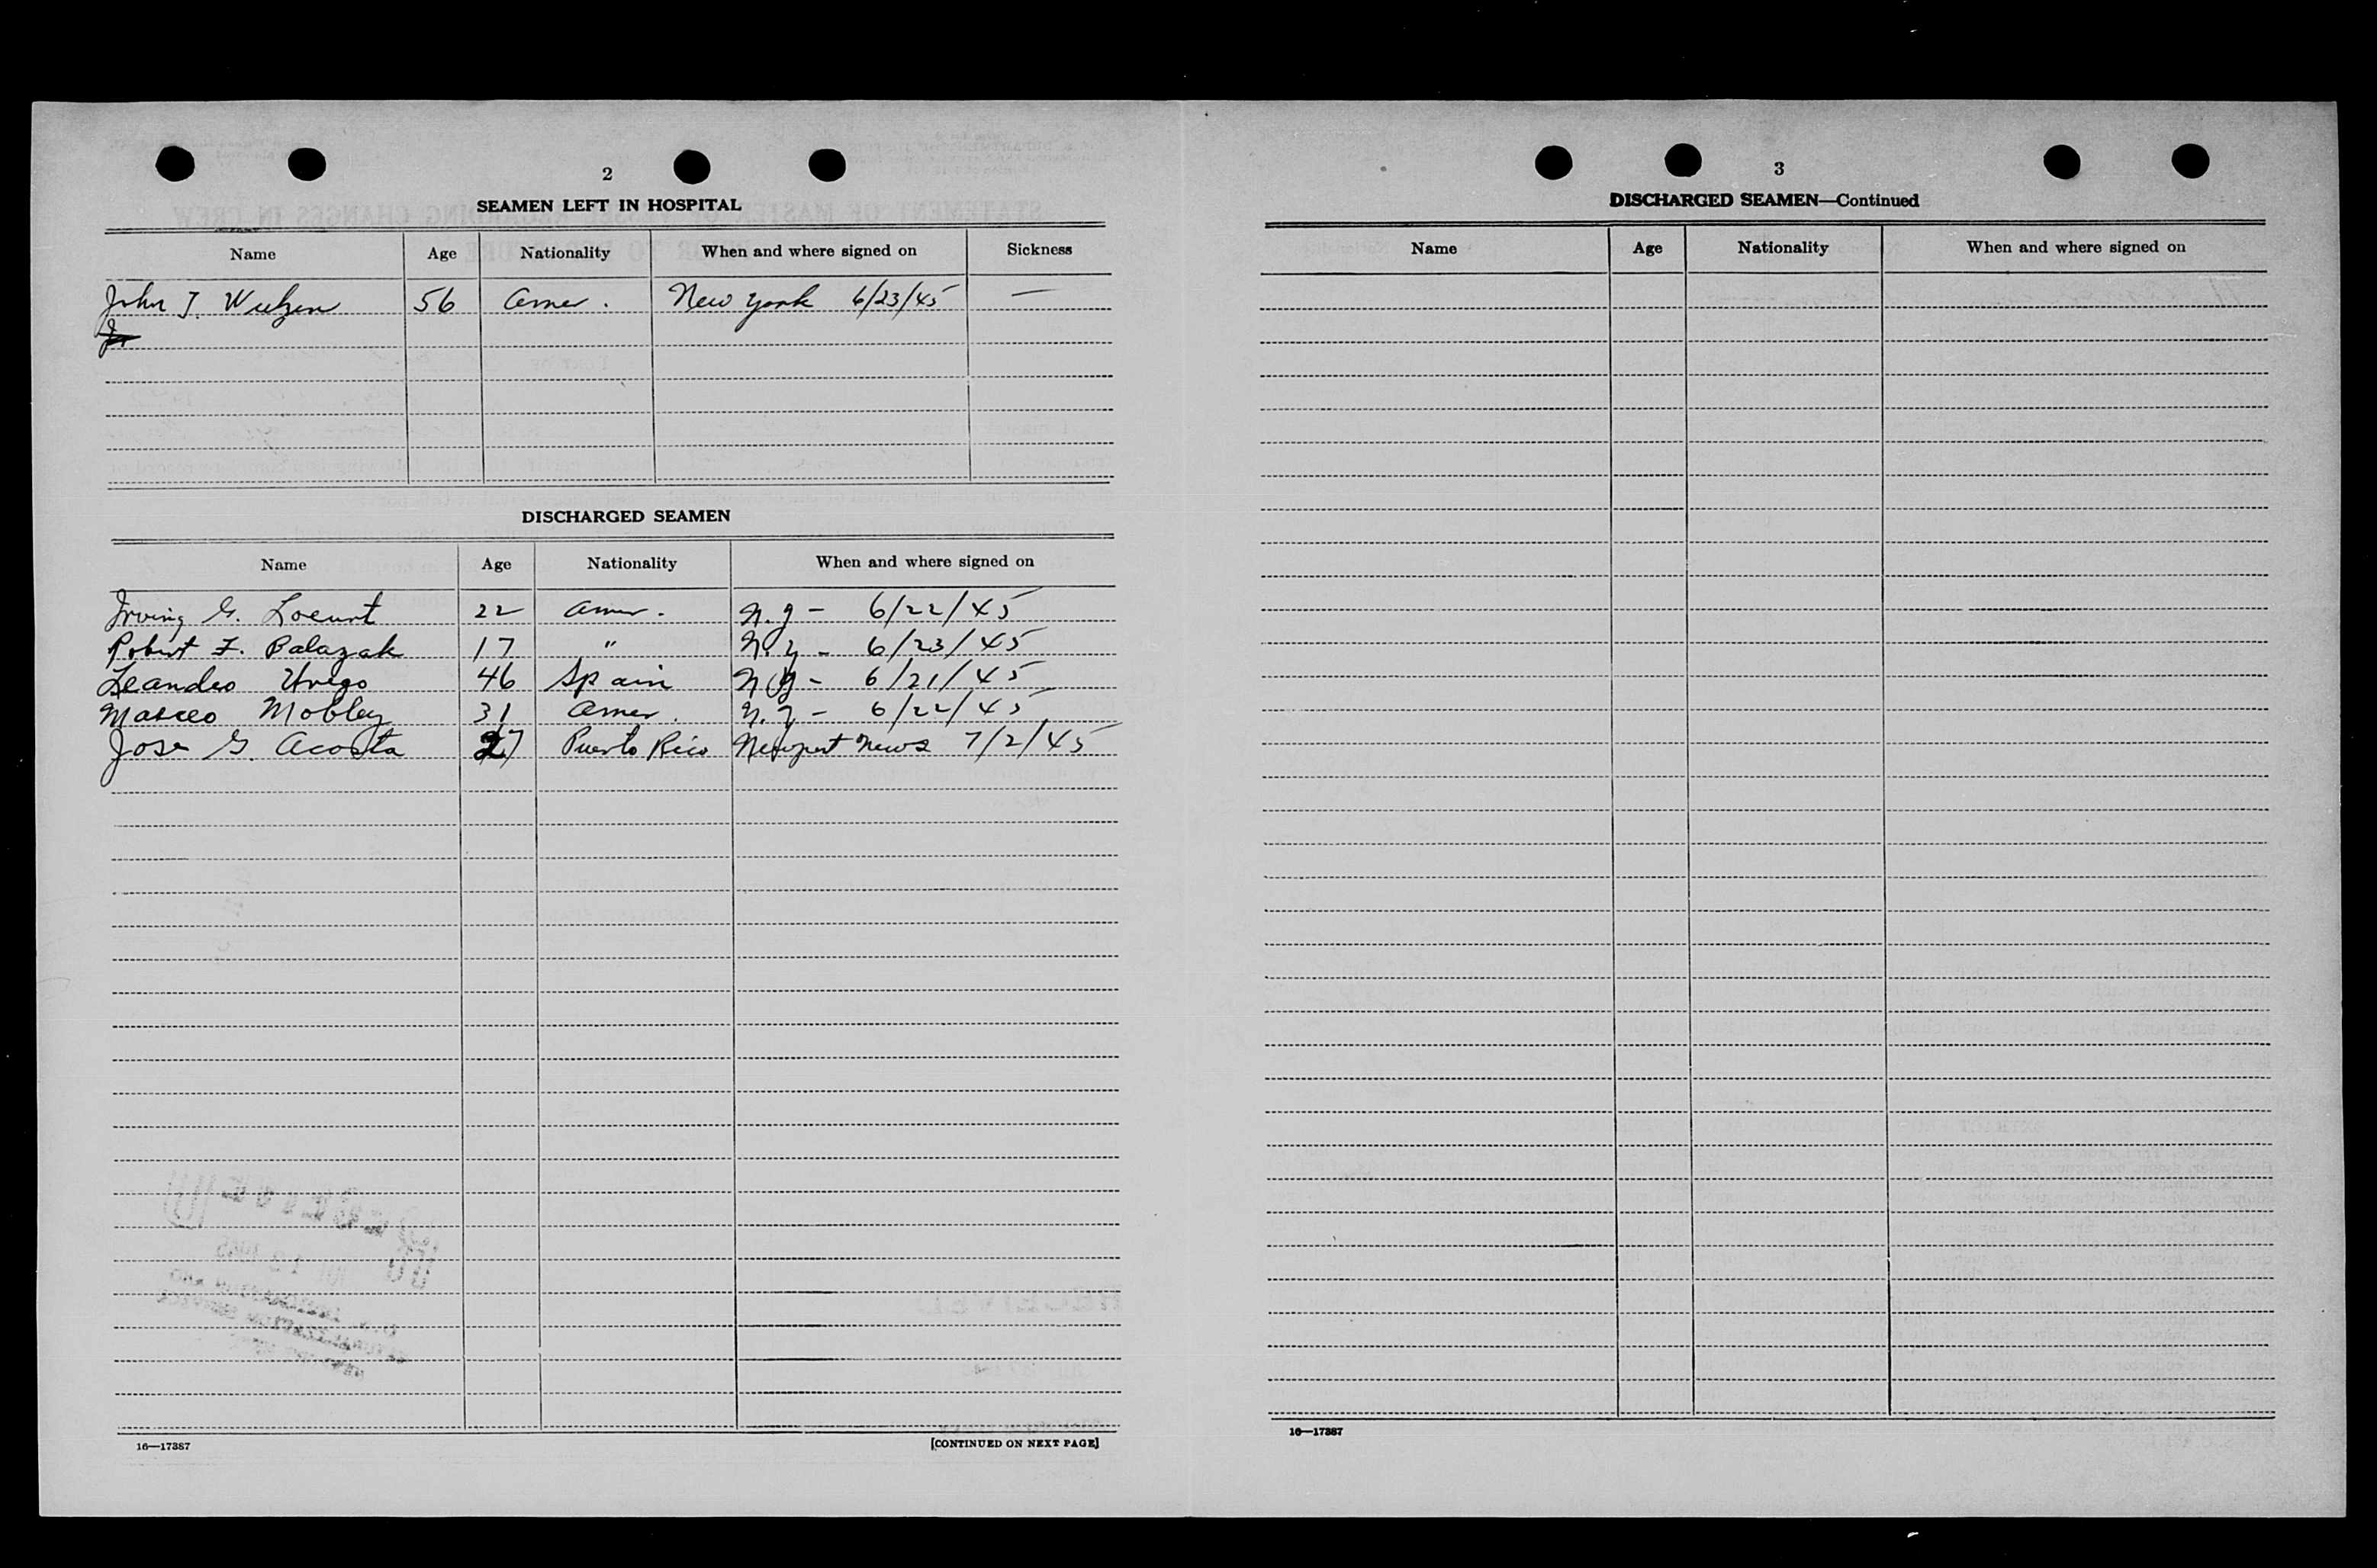 2
SEAMEN LEFT IN HOSPITAL
Name Age Nationality When and where signed on Sickness
John J. 56 Amer. New York 6/23/45 —
DISCHARGED SEAMEN
Name Age Nationality When and where signed on
Irving G. 22 Amer. N.Y - 6/22/45
Robert F. Balazak 17 " N.Y - 6/23/45
Leandro Urego 46 Spain N.Y - 6/21/45
Masceo Mobley 31 Amer. N.Y - 6/22/45
Jose G. Acosta 27 Puerto Rico Newport News 7/2/45
16—17387
[CONTINUED ON NEXT PAGE]
3
DISCHARGED SEAMEN—Continued
Name Age Nationality When and where signed on
16—17387